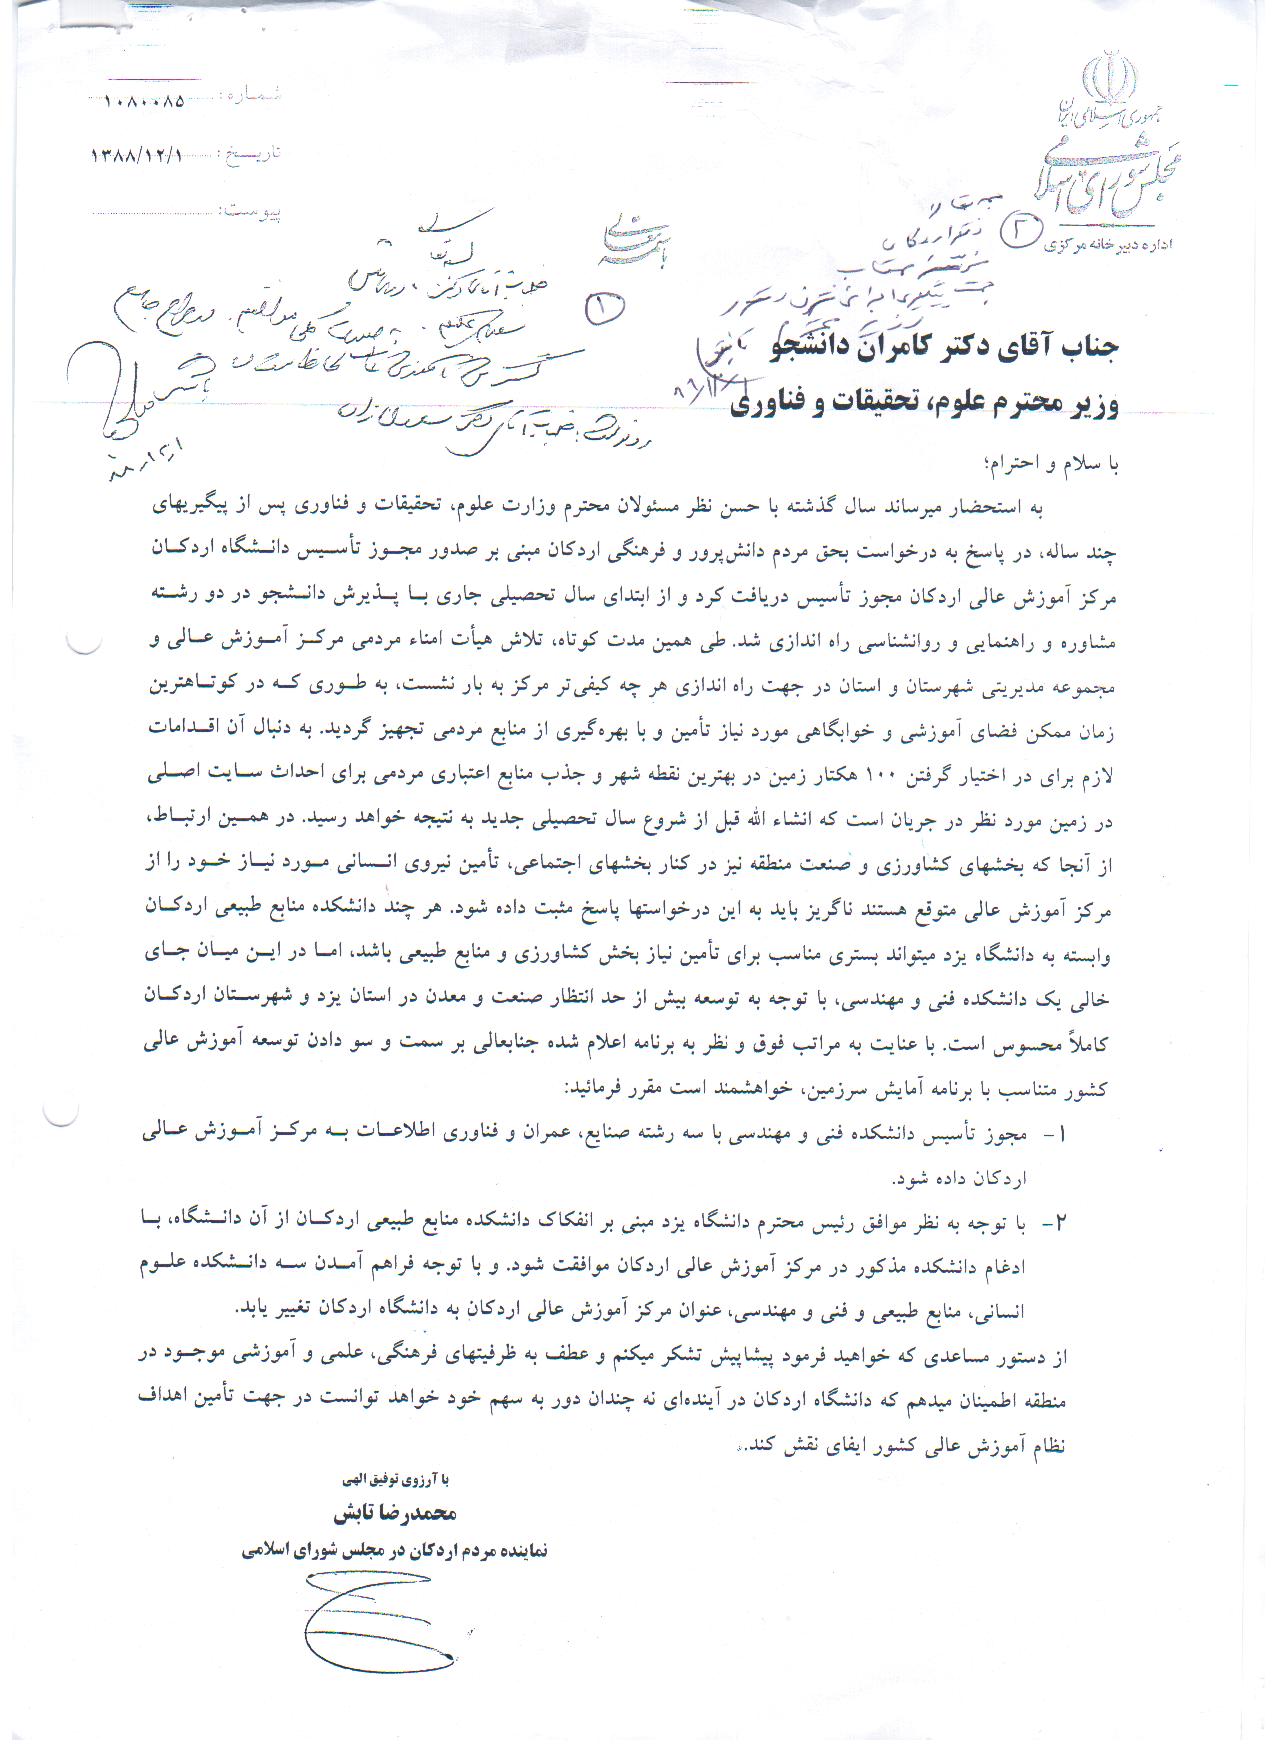 جمهوری اسلامی ایران
مجلس شورای اسلامی
اداره دبیرخانه مرکزی
شماره: ۱۰۸۰۰۸۵
تاریخ: ۱۳۸۸/۱۲/۱
پیوست:
باسمه تعالی
۲
۱
جناب آقای دکتر کامران دانشجو
وزیر محترم علوم، تحقیقات و فناوری
با سلام و احترام؛
به استحضار میرساند سال گذشته با حسن نظر مسئولان محترم وزارت علوم، تحقیقات و فناوری پس از پیگیریهای
چند ساله، در پاسخ به درخواست بحق مردم دانش‌پرور و فرهنگی اردکان مبنی بر صدور مجوز تأسیس دانشگاه اردکان
مرکز آموزش عالی اردکان مجوز تأسیس دریافت کرد و از ابتدای سال تحصیلی جاری با پذیرش دانشجو در دو رشته
مشاوره و راهنمایی و روانشناسی راه اندازی شد. طی همین مدت کوتاه، تلاش هیأت امناء مردمی مرکز آموزش عالی و
مجموعه مدیریتی شهرستان و استان در جهت راه اندازی هر چه کیفی‌تر مرکز به بار نشست، به طوری که در کوتاهترین
زمان ممکن فضای آموزشی و خوابگاهی مورد نیاز تأمین و با بهره‌گیری از منابع مردمی تجهیز گردید. به دنبال آن اقدامات
لازم برای در اختیار گرفتن ۱۰۰ هکتار زمین در بهترین نقطه شهر و جذب منابع اعتباری مردمی برای احداث سایت اصلی
در زمین مورد نظر در جریان است که انشاء الله قبل از شروع سال تحصیلی جدید به نتیجه خواهد رسید. در همین ارتباط،
از آنجا که بخشهای کشاورزی و صنعت منطقه نیز در کنار بخشهای اجتماعی، تأمین نیروی انسانی مورد نیاز خود را از
مرکز آموزش عالی متوقع هستند ناگریز باید به این درخواستها پاسخ مثبت داده شود. هر چند دانشکده منابع طبیعی اردکان
وابسته به دانشگاه یزد میتواند بستری مناسب برای تأمین نیاز بخش کشاورزی و منابع طبیعی باشد، اما در این میان جای
خالی یک دانشکده فنی و مهندسی، با توجه به توسعه بیش از حد انتظار صنعت و معدن در استان یزد و شهرستان اردکان
کاملاً محسوس است. با عنایت به مراتب فوق و نظر به برنامه اعلام شده جنابعالی بر سمت و سو دادن توسعه آموزش عالی
کشور متناسب با برنامه آمایش سرزمین، خواهشمند است مقرر فرمائید:
۱- مجوز تأسیس دانشکده فنی و مهندسی با سه رشته صنایع، عمران و فناوری اطلاعات به مرکز آموزش عالی
اردکان داده شود.
۲- با توجه به نظر موافق رئیس محترم دانشگاه یزد مبنی بر انفکاک دانشکده منابع طبیعی اردکان از آن دانشگاه، با
ادغام دانشکده مذکور در مرکز آموزش عالی اردکان موافقت شود. و با توجه فراهم آمدن سه دانشکده علوم
انسانی، منابع طبیعی و فنی و مهندسی، عنوان مرکز آموزش عالی اردکان به دانشگاه اردکان تغییر یابد.
از دستور مساعدی که خواهید فرمود پیشاپیش تشکر میکنم و عطف به ظرفیتهای فرهنگی، علمی و آموزشی موجود در
منطقه اطمینان میدهم که دانشگاه اردکان در آینده‌ای نه چندان دور به سهم خود خواهد توانست در جهت تأمین اهداف
نظام آموزش عالی کشور ایفای نقش کند.
با آرزوی توفیق الهی
محمدرضا تابش
نماینده مردم اردکان در مجلس شورای اسلامی